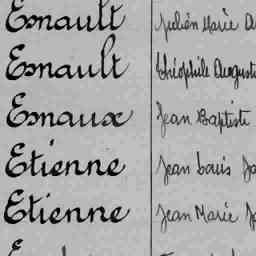 Esnault Julien Marie
Esnault Théophile Auguste
Esnaux Jean Baptiste
Etienne Jean Louis
Etienne Jean Marie